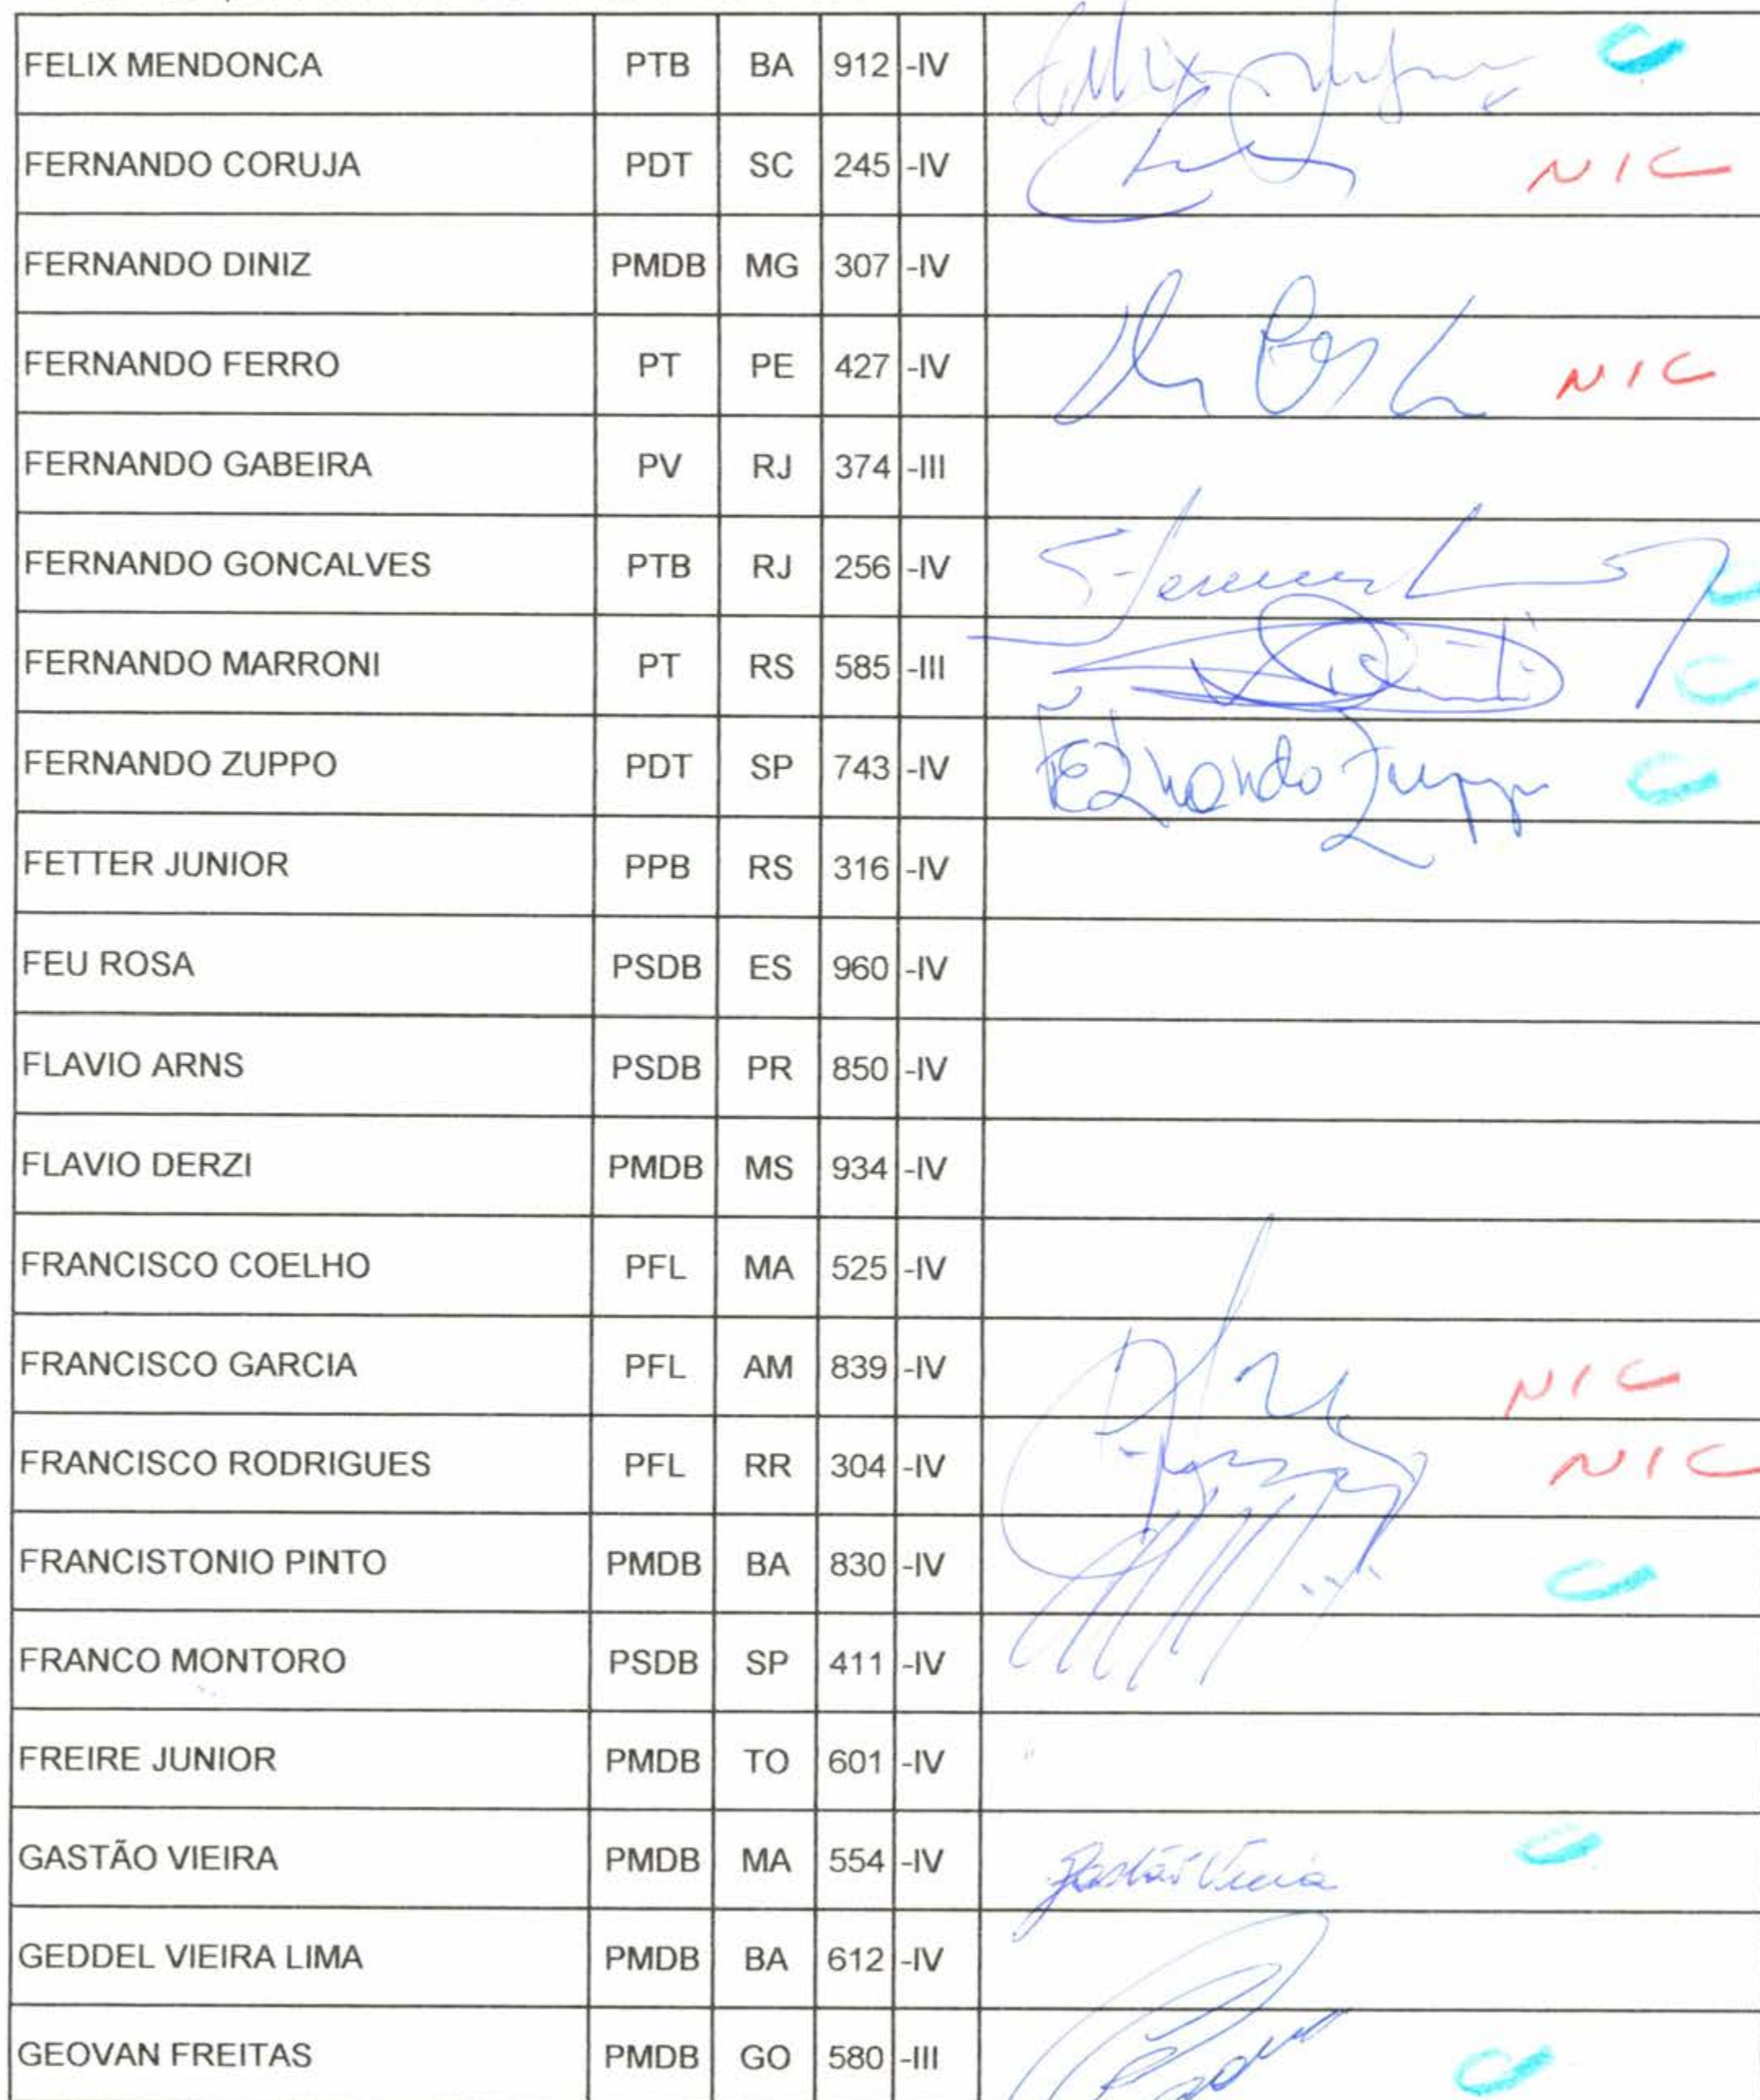 FELIX MENDONCA PTB BA 912 -IV
FERNANDO CORUJA PDT SC 245 -IV NIC
FERNANDO DINIZ PMDB MG 307 -IV
FERNANDO FERRO PT PE 427 -IV NIC
FERNANDO GABEIRA PV RJ 374 -III
FERNANDO GONCALVES PTB RJ 256 -IV
FERNANDO MARRONI PT RS 585 -III
FERNANDO ZUPPO PDT SP 743 -IV
FETTER JUNIOR PPB RS 316 -IV
FEU ROSA PSDB ES 960 -IV
FLAVIO ARNS PSDB PR 850 -IV
FLAVIO DERZI PMDB MS 934 -IV
FRANCISCO COELHO PFL MA 525 -IV
FRANCISCO GARCIA PFL AM 839 -IV NIC
FRANCISCO RODRIGUES PFL RR 304 -IV NIC
FRANCISTONIO PINTO PMDB BA 830 -IV
FRANCO MONTORO PSDB SP 411 -IV
FREIRE JUNIOR PMDB TO 601 -IV
GASTÃO VIEIRA PMDB MA 554 -IV Gastão Vieira
GEDDEL VIEIRA LIMA PMDB BA 612 -IV
GEOVAN FREITAS PMDB GO 580 -III